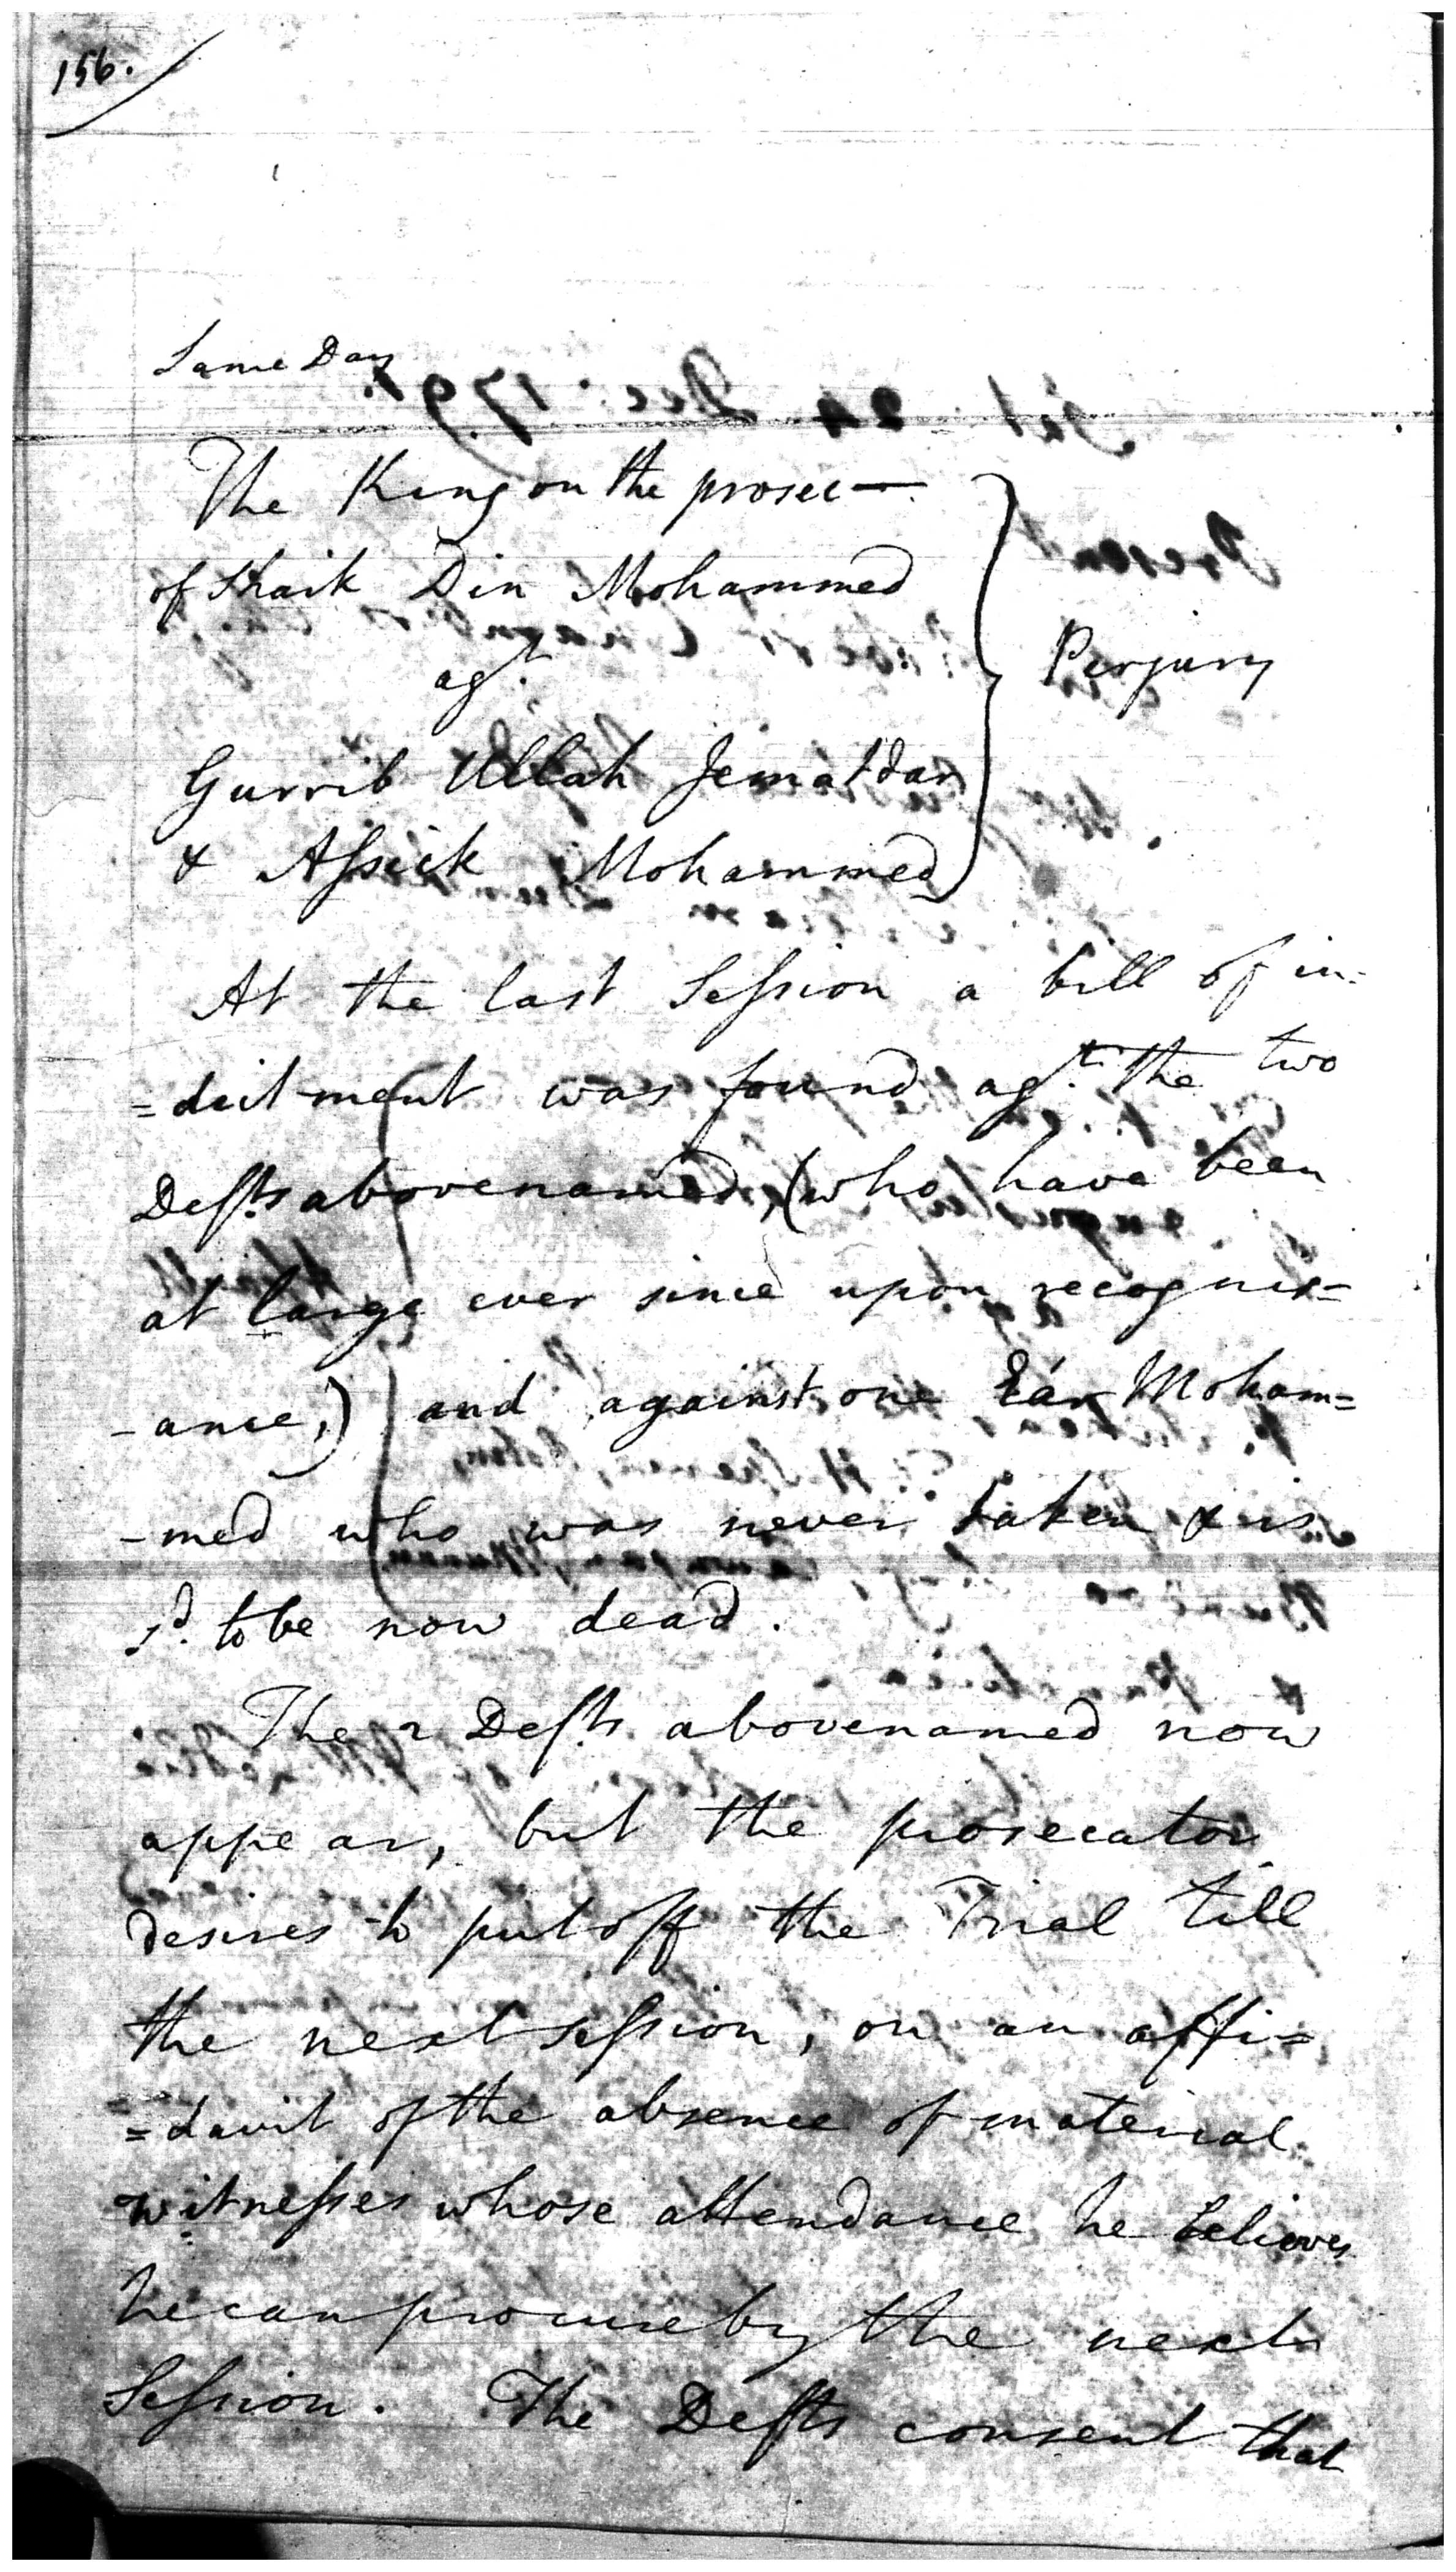 156.
Same Day
The King on the prosec—
of Shaik Din Mohammed
agt.
Gurrib Ullah Jemaldar
& Assick Mohammed
Perjury
At the last Session a bill of in-
=dictment was found agt. the two
Defts abovenamed, (who have been
at large ever since upon recognis=
-ance,) and against one Eár Moham=
-med who was never taken & is
sd. to be now dead.
The 2 Defts. abovenamed now
appear, but the prosecutor
desires to put off the Trial till
the next session, on an affi=
=davit of the absence of material
witnesses whose attendance he believes
he can procure by the next
Session. The Defts consent that